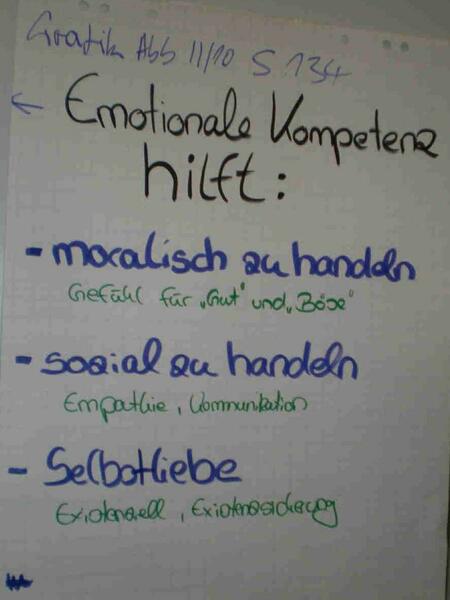 Grafik Abb 11/10 S 134
← Emotionale Kompetenz
hilft:
- moralisch zu handeln
Gefühl für „Gut" und „Böse"
- sozial zu handeln
Empathie, Kommunikation
- Selbstliebe
Existenziell, Existenzsicherung